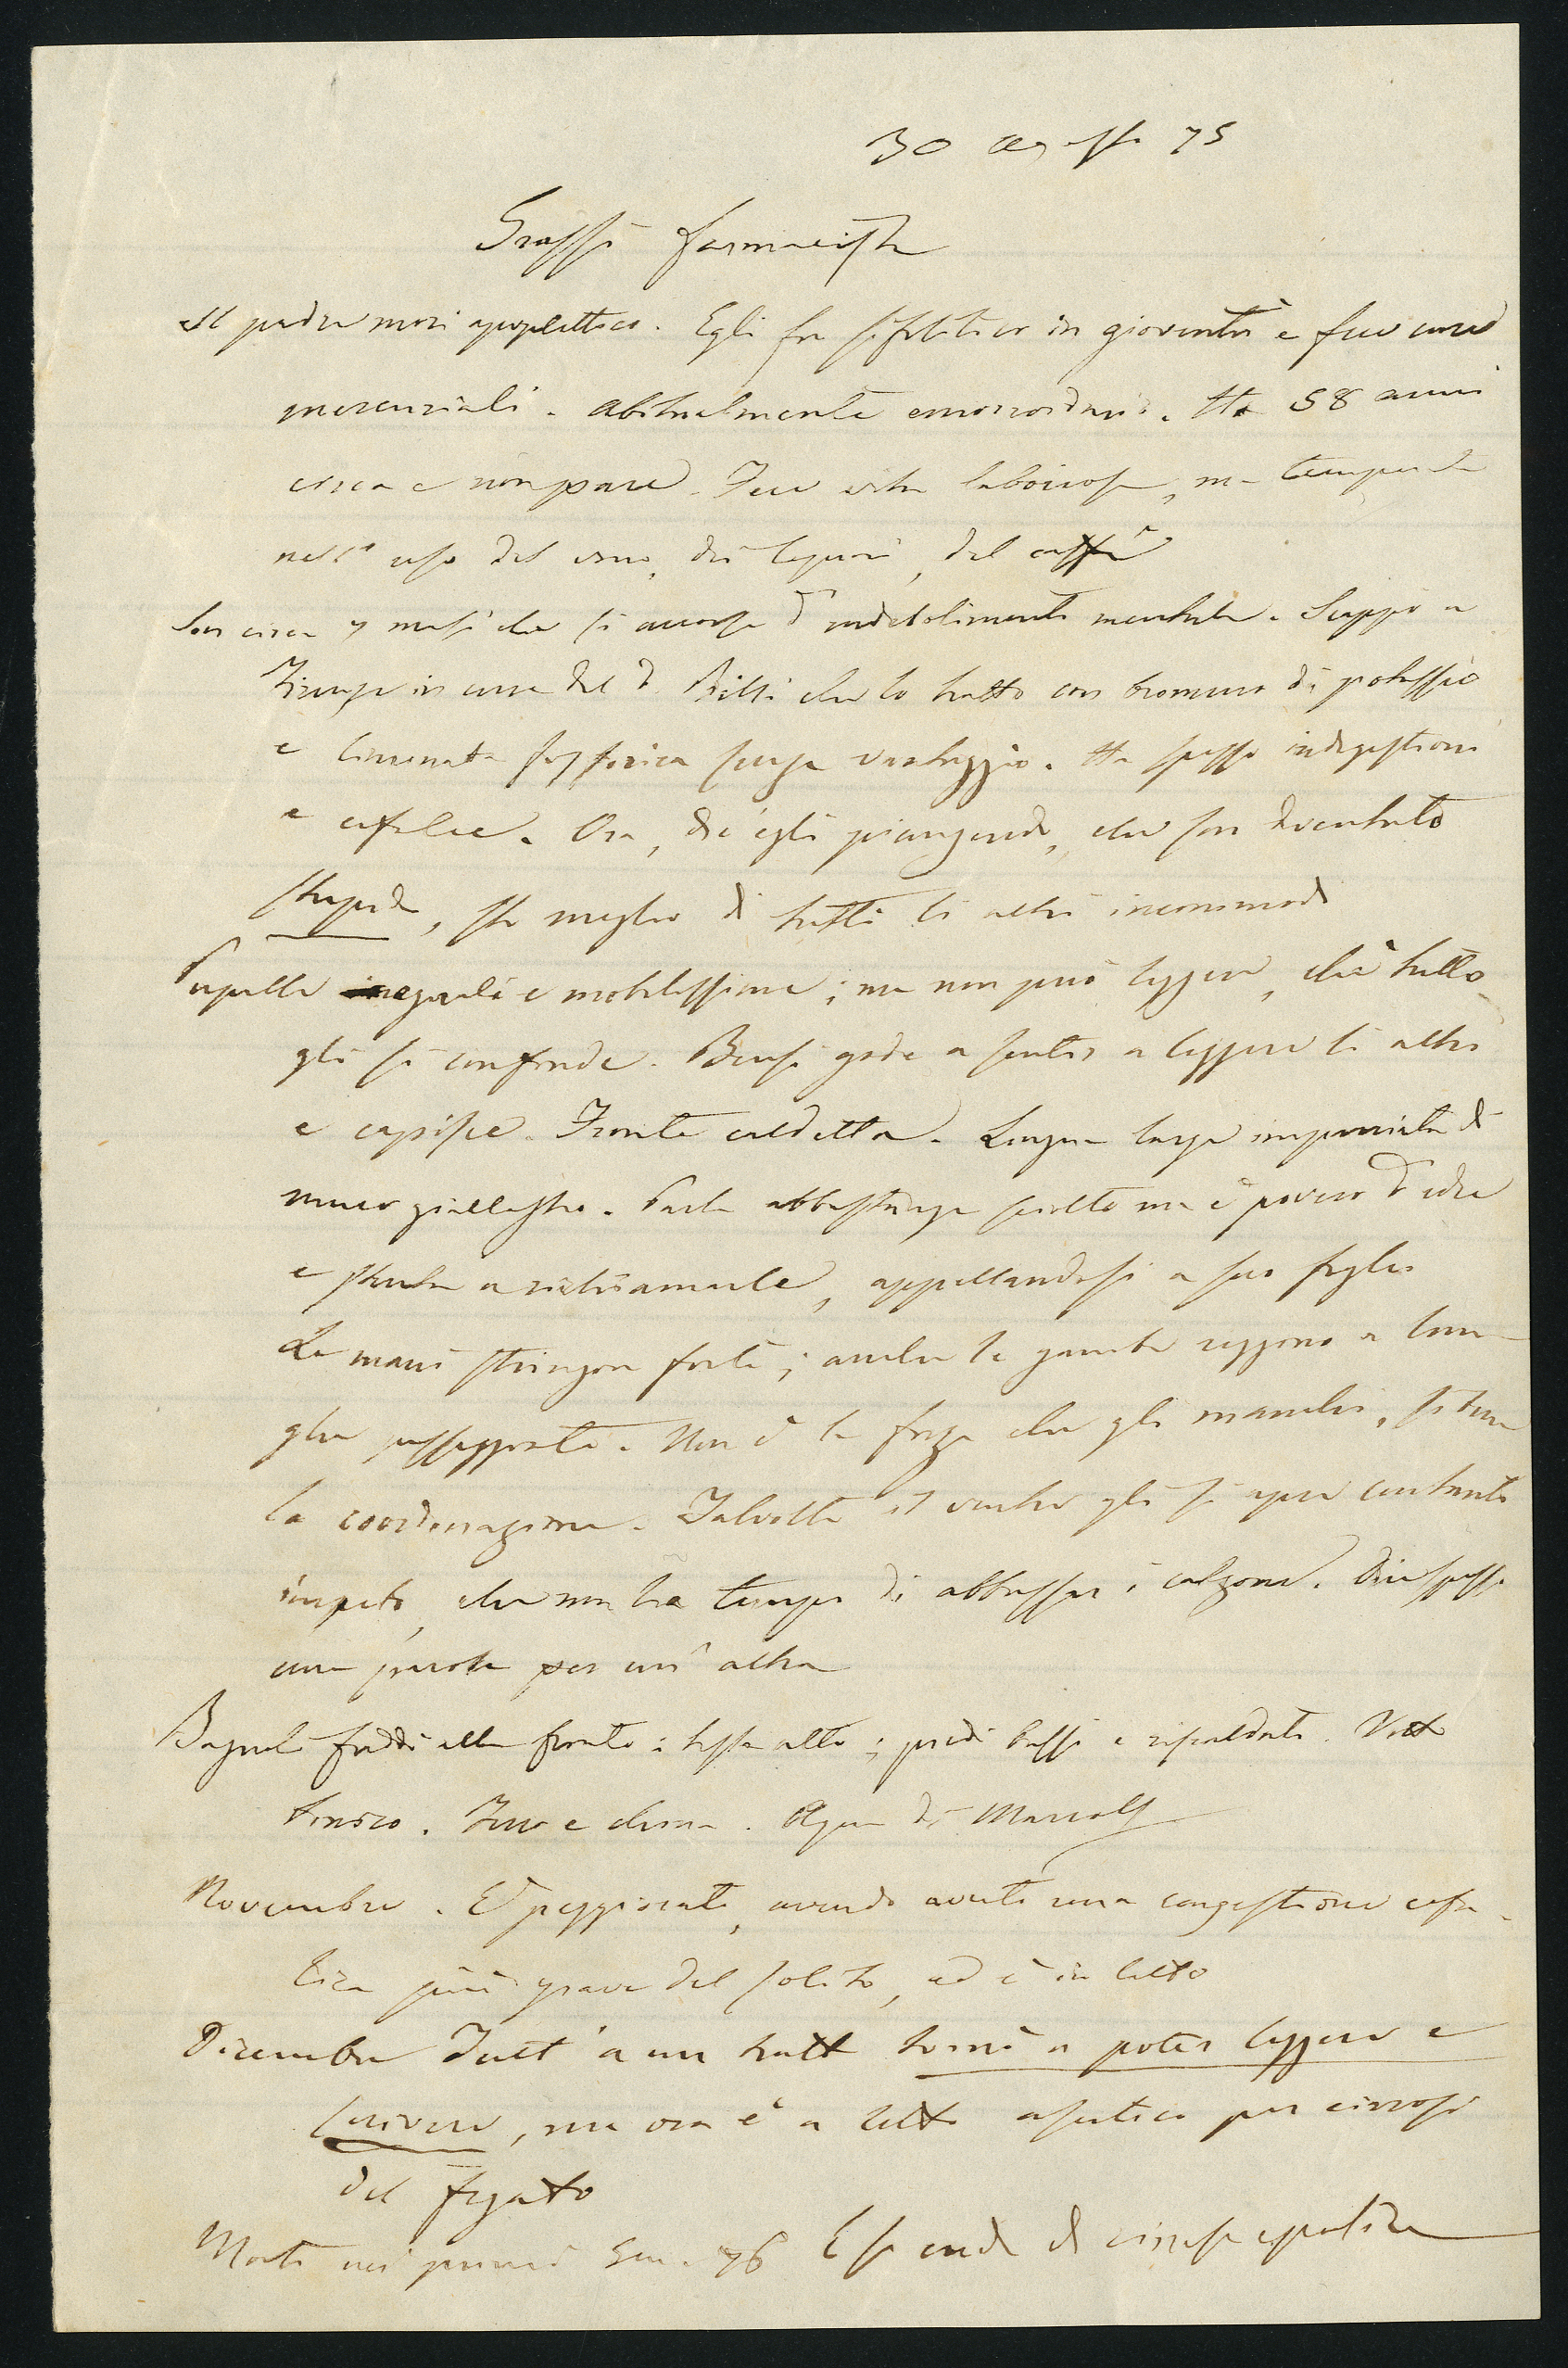 30 agosto 75
Grassi farmacista
Il padre morì apoplettico. Egli fu sifilitico in gioventù e fece cure
mercuriali. Abitualmente emorroidario. Ha 58 anni
circa e non pare. Fece vita laboriosa, ma temperata
nell'uso del vino, dei liquori, del caffè
Son circa 7 mesi che si accorse d'indebolimento mentale. Scappò a
Firenze in cura del D. che lo trattò con bromuro di potassio
e limonata fosforica senza vantaggio. Ha spesso indigestioni
e cefalee. Ora, dic'egli piangendo, che son diventato
stupido, sto meglio di tutti li altri incommodi
Pupille ineguali e mobilissime; ma non può leggere, chè tutto
gli si confonde. Bensì gode a sentir a leggere li altri
e capisce. Fronte caldetta. Lingua larga impaniata di
muco giallastro. Parla abbastanza sciolto ma è povero d'idee
e stenta a richiamarle, appellandosi a suo figlio
Le mani stringon forte; anche le gambe reggono a lun-
ghe passeggiate. Non è la forza che gli manchi, sibene
la coordinazione. Talvolta il ventre gli si apre con tanto
impeto, che non ha tempo di abbassar i calzoni. Dice spesso
una parola per un'altra
Bagnoli freddi alla fronte; testa alta; piedi bassi e riscaldati. Vitto
tonico. Ferro e china. Aqua di
Novembre. E' peggiorato, avendo avuto una congestione cefa-
lica più grave del solito, ed è in letto
Dicembre Tutt'a un tratto tornò a poter leggere e
scrivere, ma ora è a letto ascitico per cirrosi
del fegato
Morto nei primi Gen. 76 di cirrosi epatica